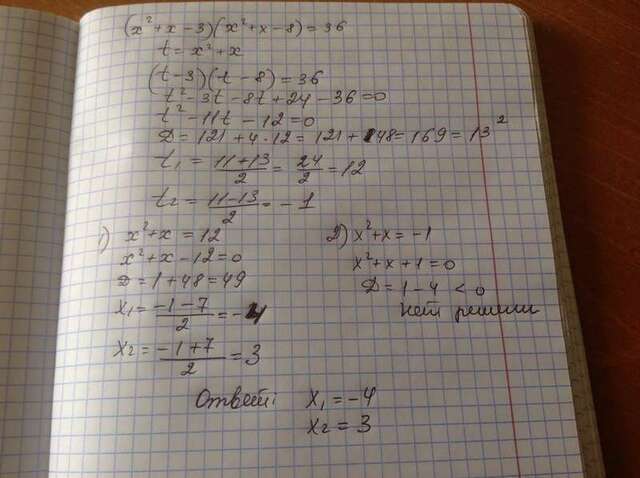 (x²+x-3)(x²+x-8)=36
t=x²+x
(t-3)(t-8)=36
t²-3t-8t+24-36=0
t²-11t-12=0
D=121+4·12=121+48=169=13²
t₁=(11+13)/2=24/2=12
t₂=(11-13)/2=-1
1) x²+x=12
x²+x-12=0
D=1+48=49
x₁=(-1-7)/2=-4
x₂=(-1+7)/2=3
2) x²+x=-1
x²+x+1=0
D=1-4<0
нет решени
Ответ: x₁=-4
x₂=3